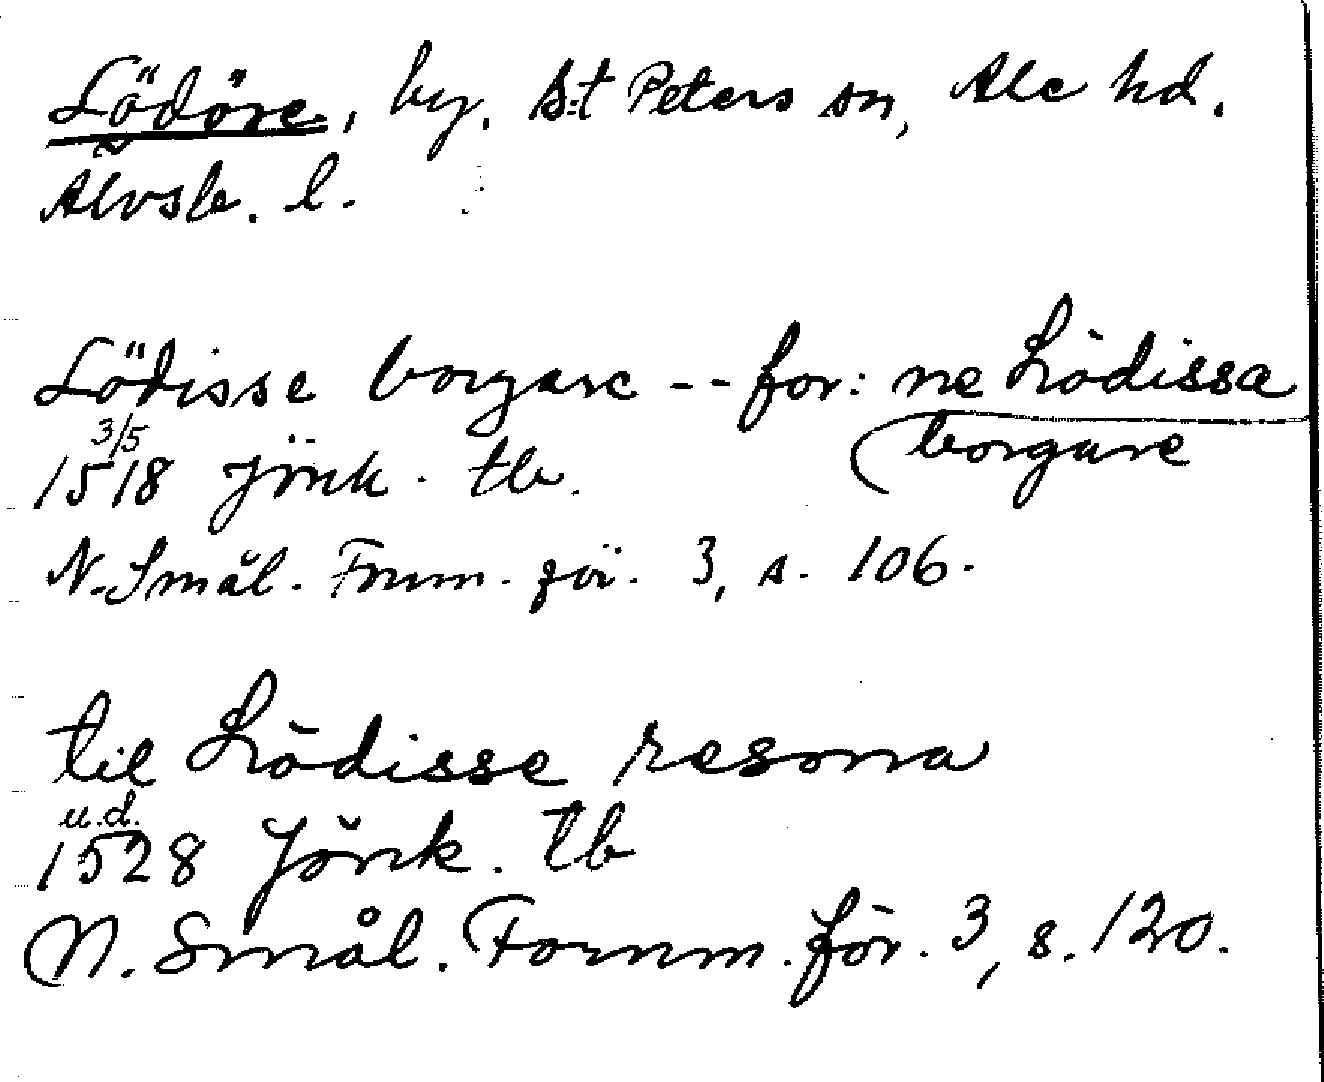 Lödöse, by. S:t Peters sn, Ale hd.
Älvsb. l.
Lödisse borgare -- for: ne Lödissa
borgare
3/5
1518 Jönk. tb.
N. Smål. Fmm. för. 3, s. 106.
til Lödisse resona
u.d.
1528 Jönk. tb
N. Smål. Fornm. för. 3, s. 120.